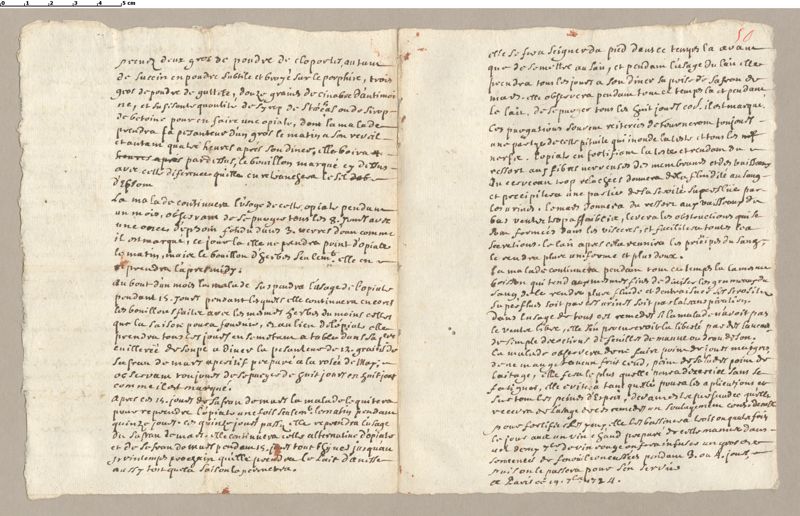 prenez deux gros de poudre de cloportes, autant
de succin en poudre subtile et broyé sur le porphire, trois
gros de poudre de guttete, douze grains de cinabre d'antimoi
ne, et suffisante quantité de syrop de ou de sirop
de betoine pour en faire une opiate, dont la malade
prendra la pesanteur d'un gros le matin a son reveil
et autant quatre heures après son diner, elle boira
par dessus, le bouillon marqué cy dessus
avec cette difference qu'elle en retranchera le sel
d'Epsom
La malade continuera l'usage de cette opiate pendant
un mois, observant de se purger tous les 8. jours avec
une once d'epsom fondu dans 3. verres d'eau comme
il est marqué, ce jour la elle ne prendra point d'opiate
le matin, mais le bouillon d'herbes seulemt. elle en
reprendra l'après midy.
Au bout d'un mois la malade suspendra l'usage de l'opiate
pendant 15. jours pendant lesquels elle continuera encore
les bouillons faits avec les mesmes herbes du moins celles
que la saison pourra fournir, et au lieu d'opiate elle
prendra tous les jours en se mettant a table dans la
cuillerée de soupe a diner la pesanteur de 12. grains de
safran de mars aperitif preparé a la rosée de May,
observant toujours de se purger de huit jours en huit jours
comme il est marqué.
Apres ces 15. jours de safran de mars la malade le quittera
pour reprendre l'opiate une fois seulemt. le matin pendant
quinze jours. ces quinze jours passés elle reprendra l'usage
du safran de mars. elle continuera cette alternative d'opiate
et de safran de mars pendant 15. jours jusqu'au
printemps prochain qu'elle prendra le lait d'anesse
aussy tost que la saison le permettra.
50
elle se fera seigner du pied dans ce temps la avant
que de se mettre au lait, et pendant l'usage du lait elle
prendra tous les jours a son diner sa prise de safran de
mars. elle observera pendant tout ce temps la et pendant
le lait, de se purger tous les huit jours comme il est marqué.
Les purgations souvent reiterées detourneront toujours
une partie de cette pituite qui inonde la teste et tous les
nerfs. l'opiate en fortifiant la teste et rendant du
ressort aux fibres nerveuses des membranes et des
du cerveau trop relachées donnera de la fluidité au sang
et precipitera une partie de la serosité superflue par
les urines. le mars donnera du ressort aux vaisseaux du
bas ventre trop affaiblis, levera les obstructions qui se
sont formées dans les visceres, et facilitera toutes les
secretions. le lait apres cela reunira les principes du sang,
le rendra plus uniforme et plus doux.
La malade continuera pendant tout ce temps la la mesme
boisson qui tend aux mesmes fins de diviser les grumeaux du
sang, de le rendre plus fluide et d'entrainer ses serosités
superflues soit par les urines soit par la transpiration.
Dans l'usage de tous ces remedes si la malade n'avoit pas
le ventre libre, elle s'en procureroit la liberté par des lavemens
de simple decoction de feuilles de mauve ou d'eau de son.
La malade observera de ne faire point de jours maigres,
de ne manger aucun fruit crud, point de salades point de
laitage, elle fera le plus qu'elle pourra d'exercice sans se
fatiguer, elle evitera tant qu'elle pourra les aplications et
sur tout les peines d'esprit, devant estre persuadée qu'elle
recevra de l'usage de ces remedes un soulagement considerable
pour fortifier ses yeux, elle les bassinera trois ou quatre fois
le jour avec un vin chaud preparé de cette maniere dans
un demy 7tier de vin rouge on fera infuser un gros de
semences de fenouil concassées pendant 3. ou 4. jours,
puis on le passera pour s'en servir
a Paris ce 19. 7bre 1724.